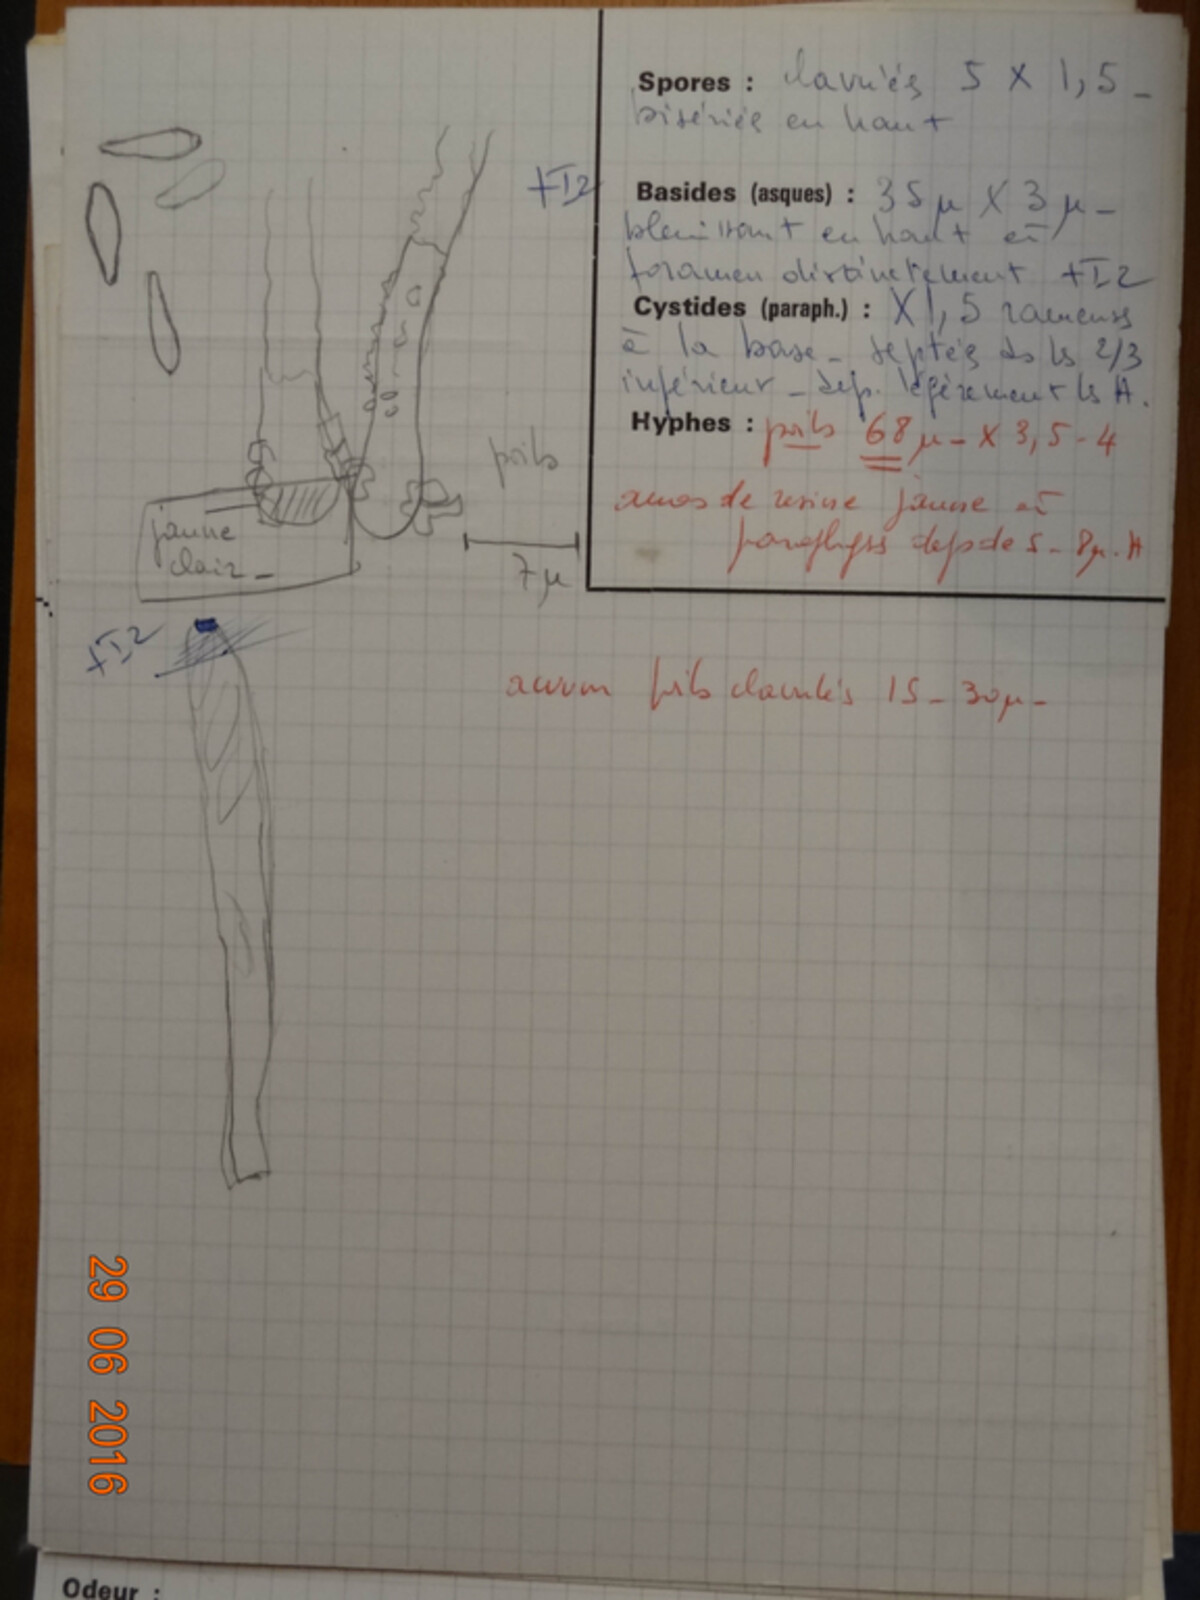 Spores : clavulés 5 X 1,5 -
bisériés en haut
+I2
Basides (asques) : 35 µ X 3 µ -
bleuissant en haut et
foramen distinctement +I2
Cystides (paraph.) : X 1,5 rameuses
à la base - septés ds ls 2/3
inférieur - dép. légèrement ls A.
Hyphes : poils 68 µ - X 3,5 - 4
amas de résine jaune et
paraphyses dep de 5 - 8µ. A
poils
7 µ
jaune
clair -
+I2
aucun poils clavulés 15 - 30µ -
29 06 2016
Odeur :